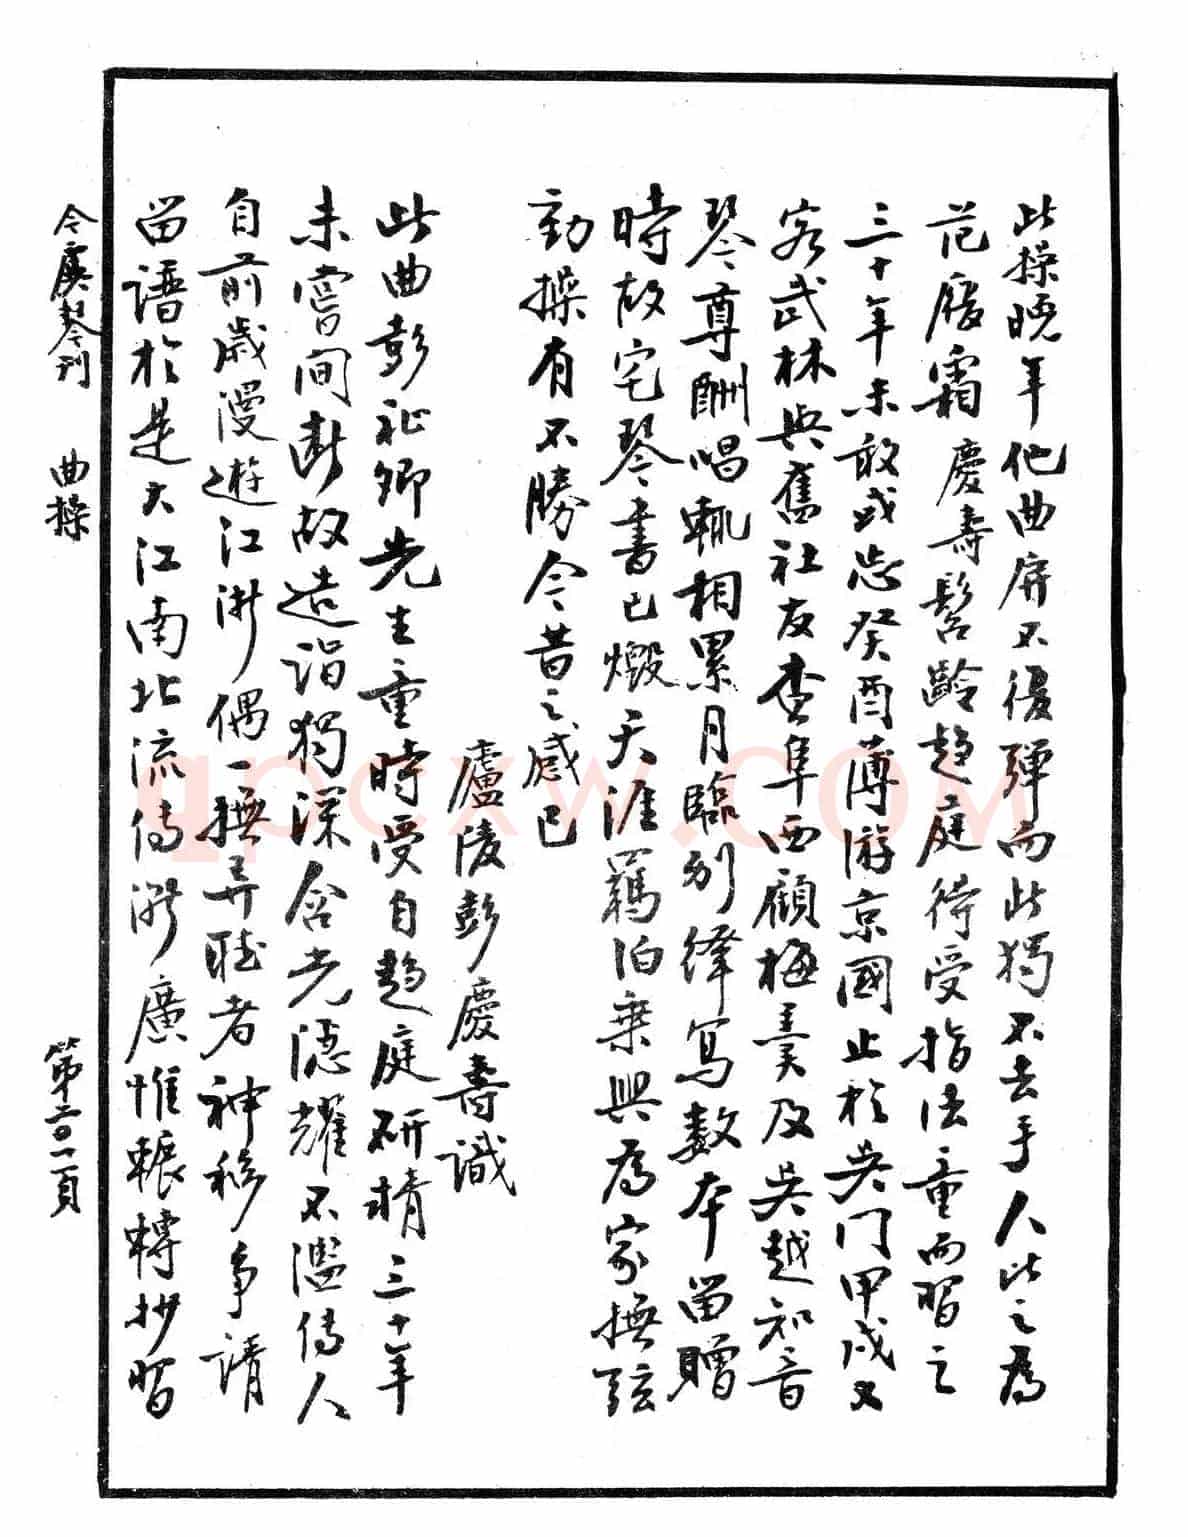 此操晚年他曲屏不復彈而此獨不去手人比之為
范履霜慶壽髫齡趨庭待受指法童而習之
三十年未敢或忘癸酉薄游京國止於吳門甲戌又
客武林與舊社友查阜西顧梅羹及吳越知音
琴尊酬唱輒相累月臨別繹寫數本留贈
時故宅琴書已燬天涯羈泊乘興為家撫弦
動操有不勝今昔之感已
廬陵彭慶壽識
此曲彭祉卿先生童時受自趨庭研精三十年
未嘗间断故造詣獨深含光隱耀不濫傳人
自前歲漫遊江浙偶一撫弄聽者神移爭請
留譜於是大江南北流傳漸廣惟輾轉抄習
今虞琴刊 曲操 第二〇一頁
qpcxw.com